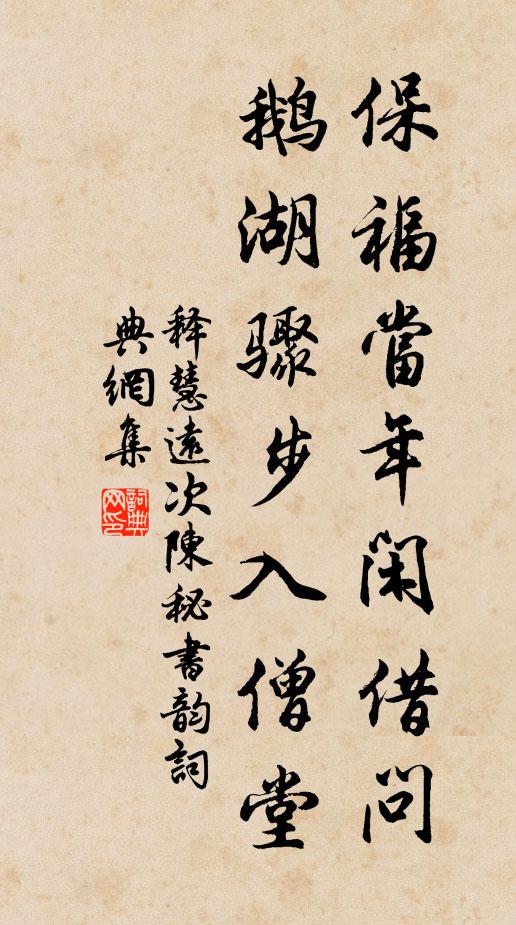 保福當年閑借問
鵝湖驟步入僧堂
释慧遠次陳秘書韵詞
典網集
詞典网印